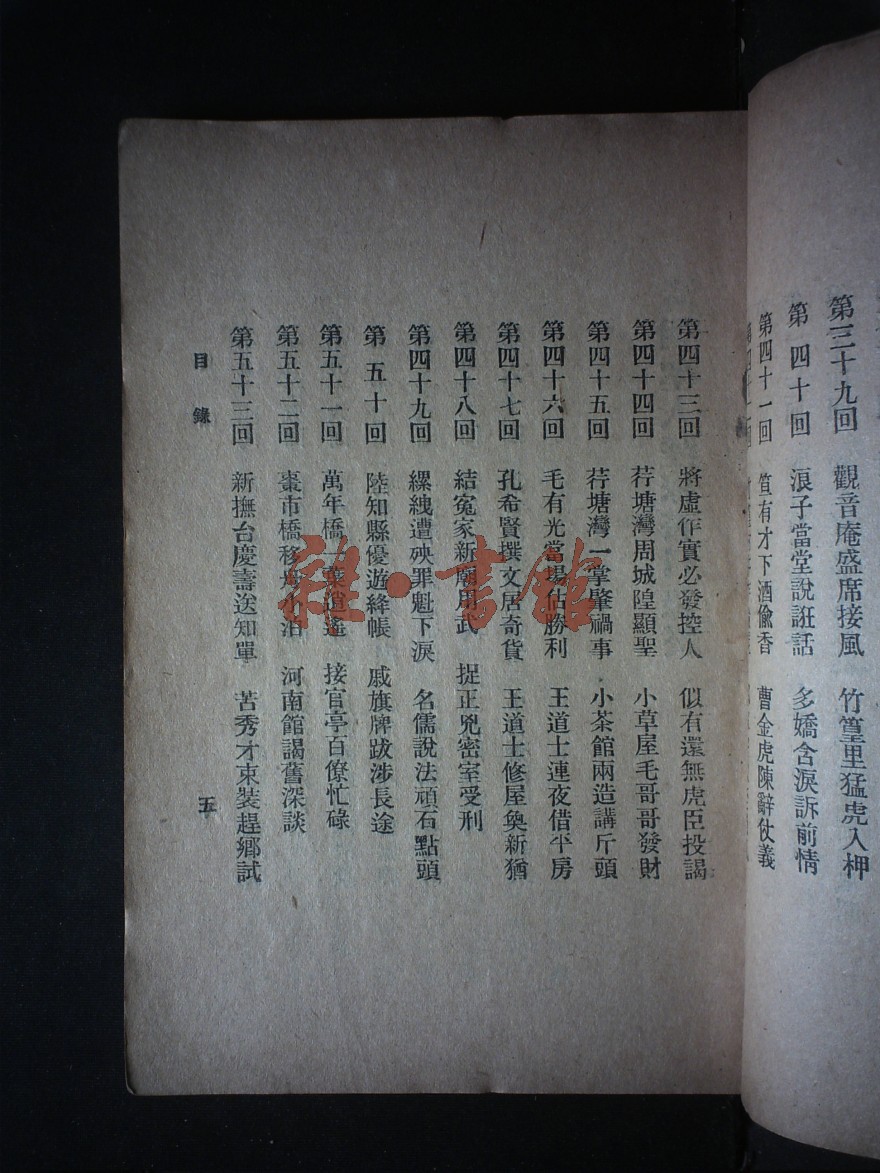 第三十九回 觀音庵盛席接風 竹篁里猛虎入柙
第四十回 浪子當堂說誑話 多嬌含淚訴前情
第四十一回 笪有才下酒偷香 曹金虎陳辭仗義
第四十三回 將虛作實必發控人 似有還無虎臣投謁
第四十四回 荇塘灣周城隍顯聖 小草屋毛哥哥發財
第四十五回 荇塘灣一掌肇禍事 小茶館兩造講斤頭
第四十六回 毛有光當場佔勝利 王道士連夜借平房
第四十七回 孔希賢撰文居奇貨 王道士修屋奐新猶
第四十八回 結冤家新廟用武 捉正兇密室受刑
第四十九回 縲絏遭殃罪魁下淚 名儒說法頑石點頭
第五十回 陸知縣優遊絳帳 戚旗牌跋涉長途
第五十一回 萬年橋一葉逍遙 接官亭百僚忙碌
第五十二回 棗市橋移舟小泊 河南館謁舊深談
第五十三回 新撫台慶壽送知單 苦秀才束裝趕鄉試
目錄
五
雜·書館